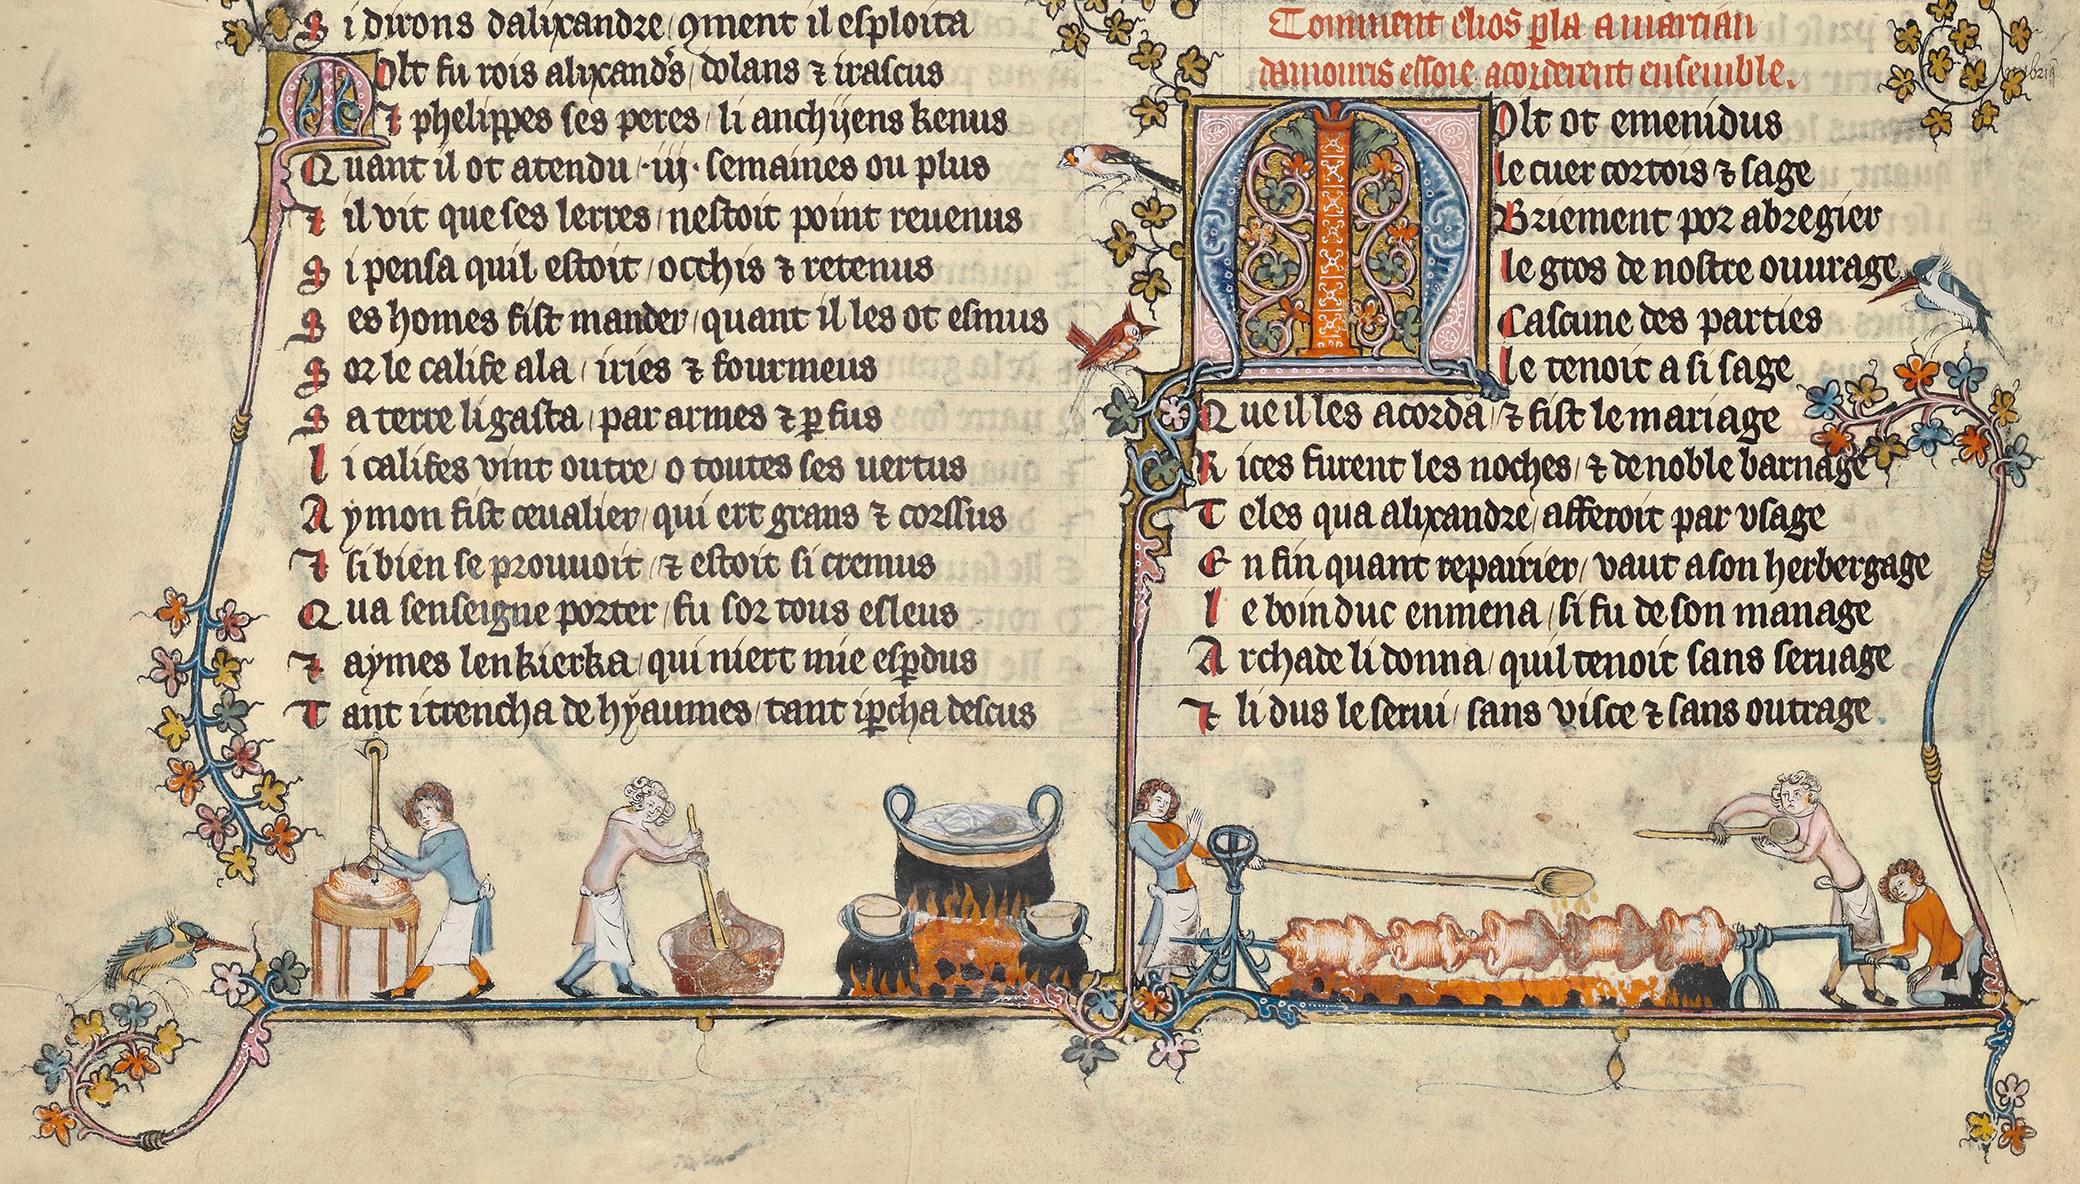 Si dirons dalixandre / qment il esploita
Molt fu rois alixandˢs / dolans ⁊ irascus
⁊ phelippes ses peres / li anchyens kenus
Quant il ot atendu / ·iij· semaines ou plus
⁊ il vit que ses lerres / nestoit point reuenus
Si pensa quil estoit / occhis ⁊ retenus
Ses homes fist mander / quant il les ot esmus
Sor le calife ala / iries ⁊ fourmeus
Sa terre li gasta / par armes ⁊ p fus
li califes vint outre / o toutes ses uertus
Aymon fist ceualier / qui ert grans ⁊ corssus
⁊ si bien se prouuoit / ⁊ estoit si cremus
Qua senseigne porter / fu sor tous esleus
⁊ aymes lenkierka / qui niert mie espdus
Tant i trencha de hyaumes / tant ipcha descus
Comment elios pla a martian
damouris essoie acorderent ensemble.
Molt ot emenidus
le cuer cortois ⁊ sage
Briement por abregier
le gros de nostre ouurage
Cascune des parties
le tenoit a si sage
Que il les acorda / ⁊ fist le mariage
Rices furent les noches / ⁊ de noble barnage
Teles qua alixandre / afferoit par vsage
En fin quant repairier / vaut a son herbergage
le boin duc enmena / si fu de son manage
Archade li donna / quil tenoit sans seruage
⁊ li dus le serui / sans visce ⁊ sans outrage